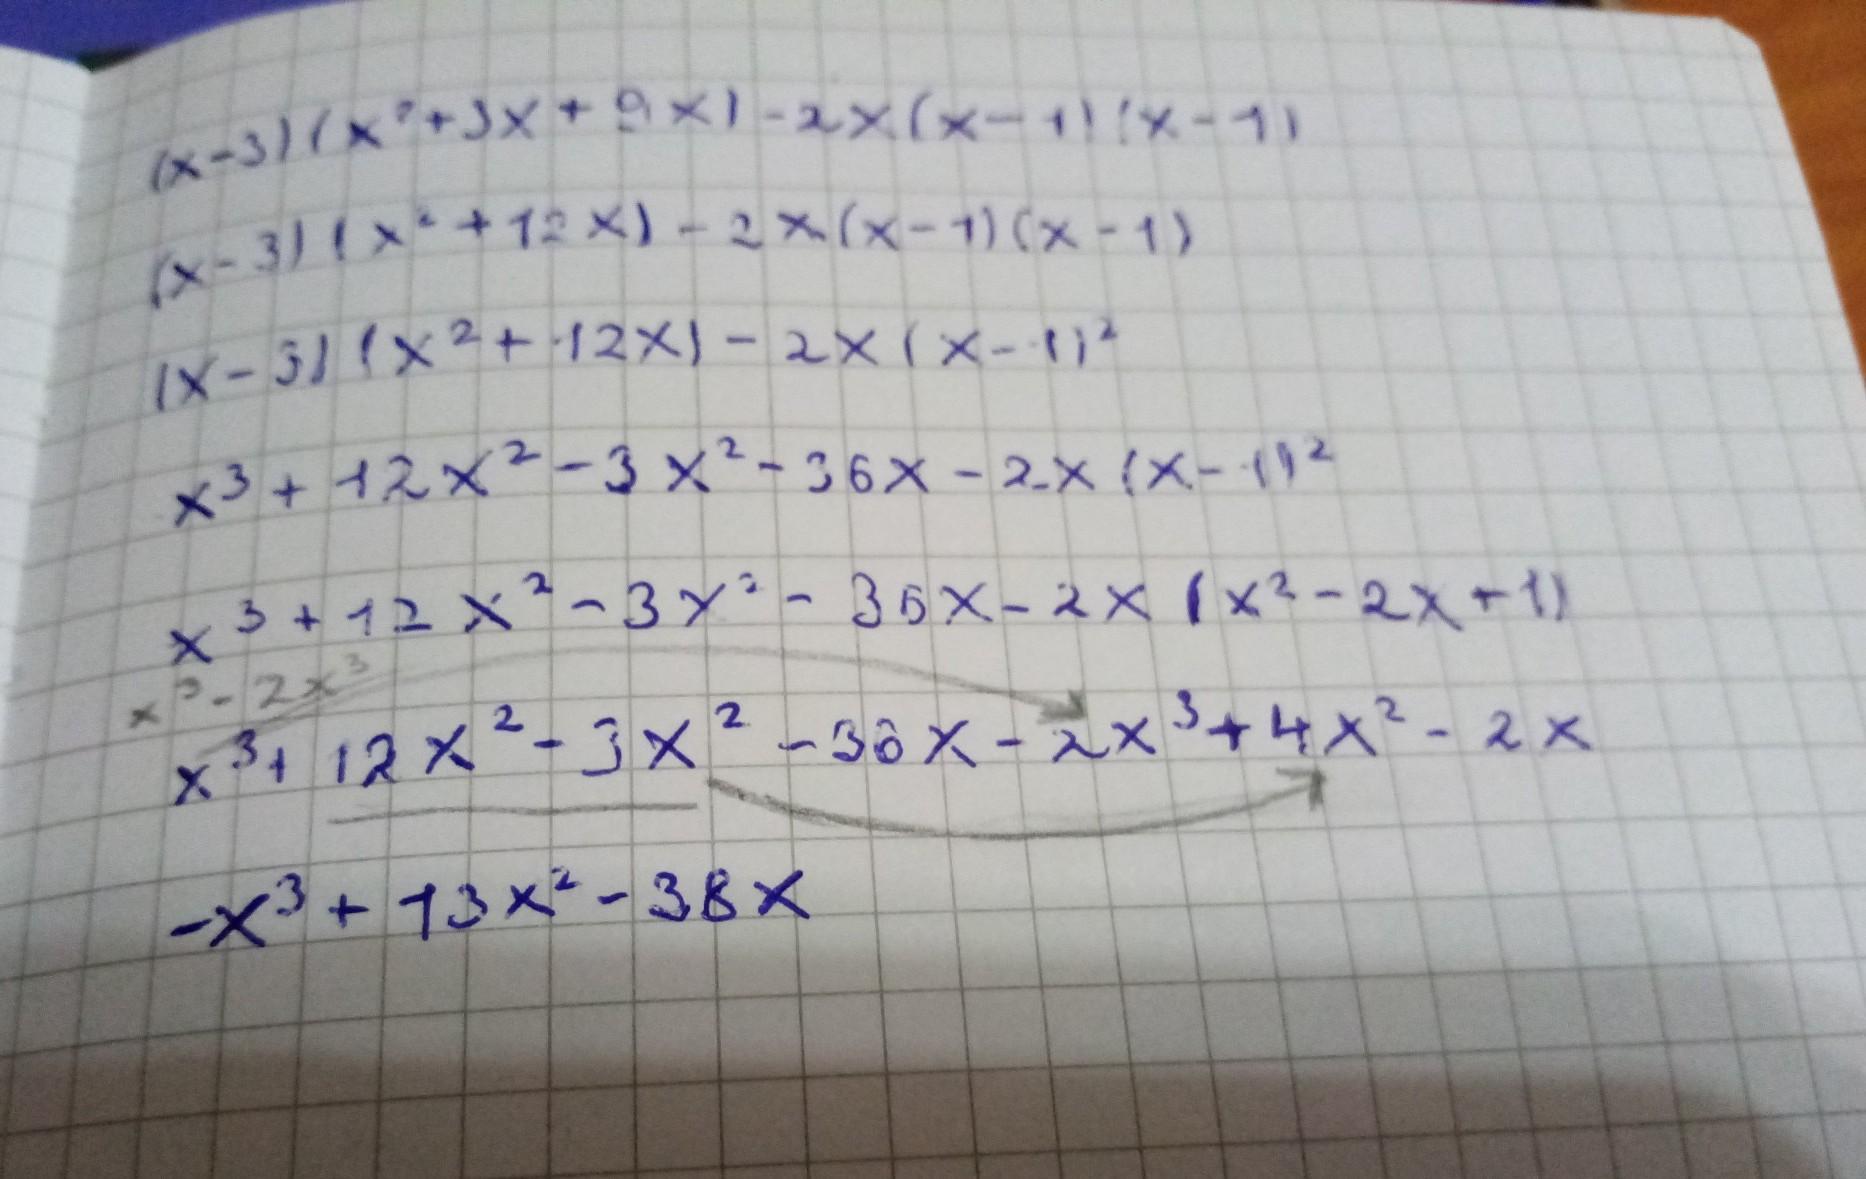 (x-3)(x²+3x+9x)-2x(x-1)(x-1)
(x-3)(x²+12x)-2x(x-1)(x-1)
(x-3)(x²+12x)-2x(x-1)²
x³+12x²-3x²-36x-2x(x-1)²
x³+12x²-3x²-36x-2x(x²-2x+1)
x³-2x³
x³+12x²-3x²-36x-2x³+4x²-2x
-x³+13x²-38x